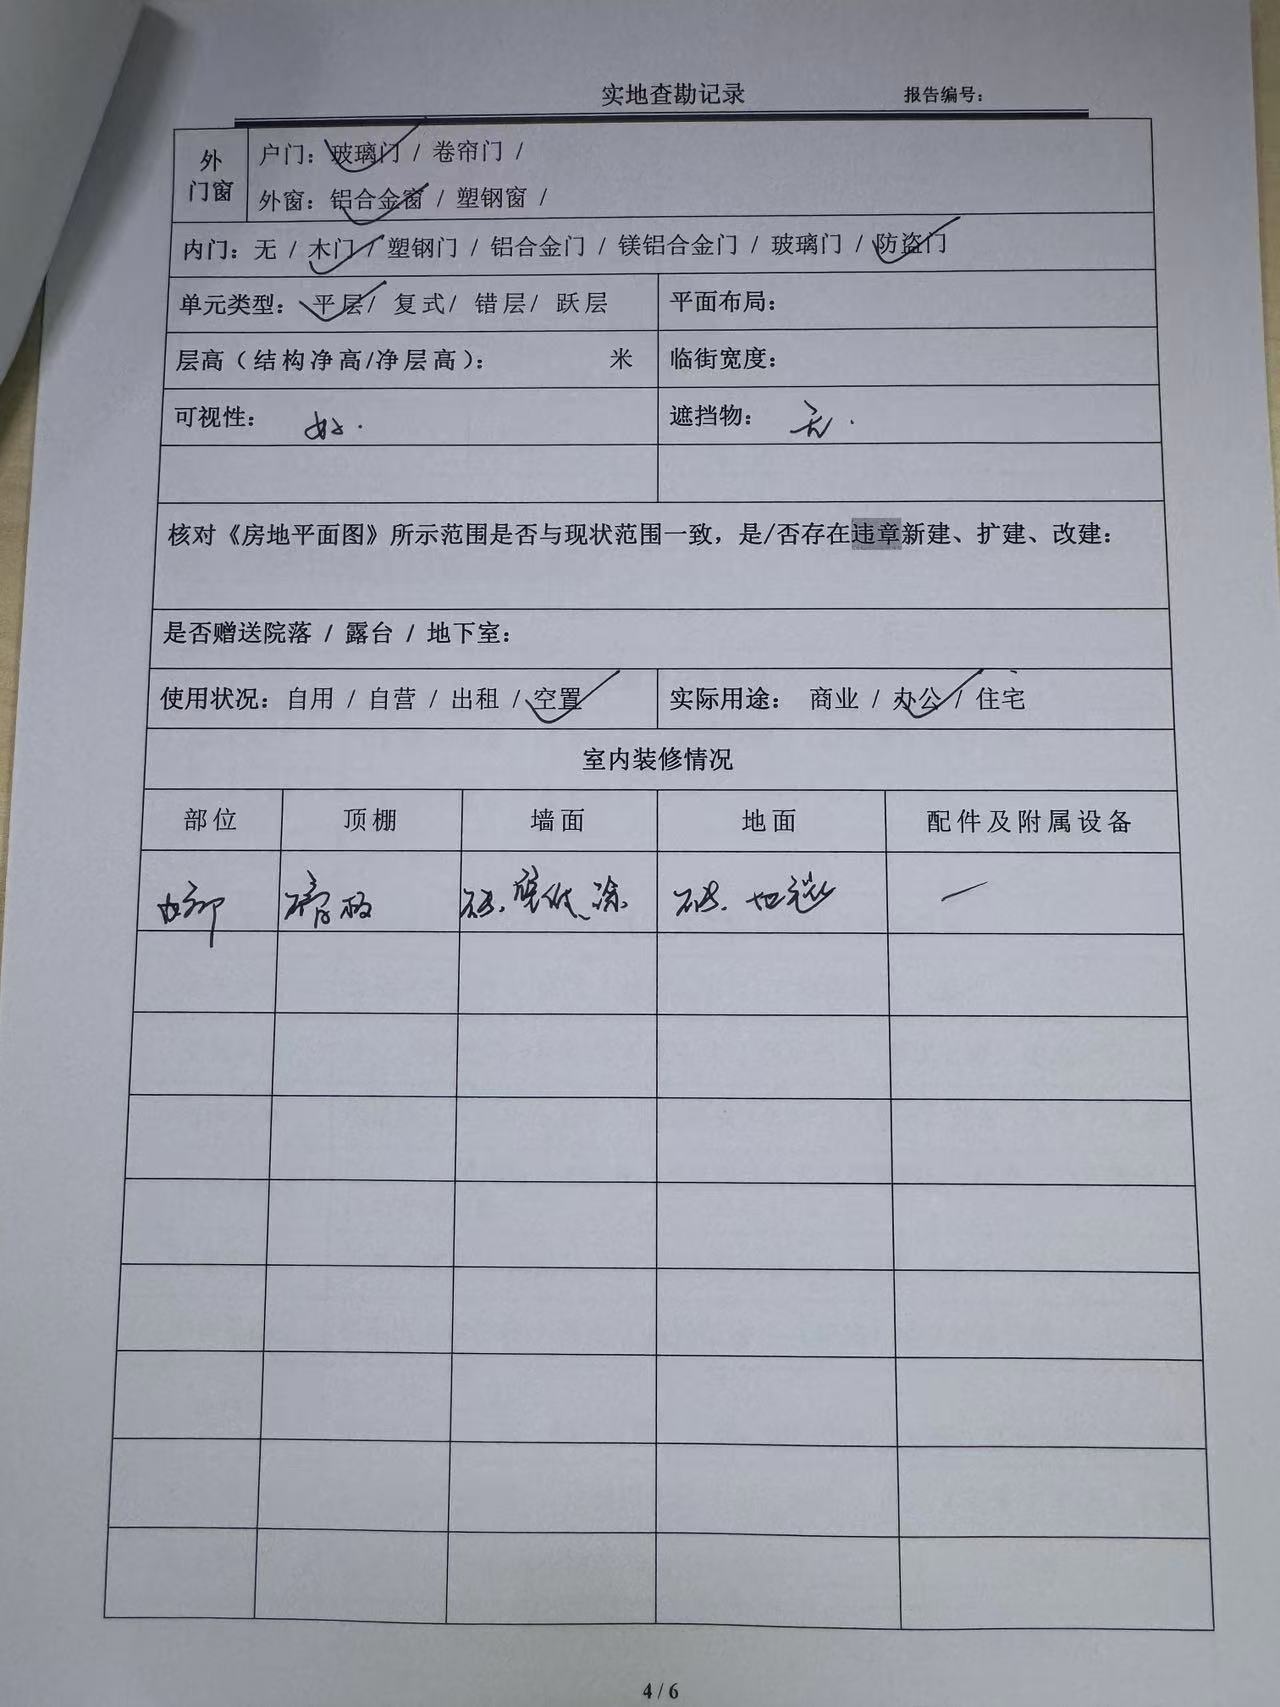 实地查勘记录 报告编号：
外门窗
户门：玻璃门 / 卷帘门 /
外窗：铝合金窗 / 塑钢窗 /
内门：无 / 木门 / 塑钢门 / 铝合金门 / 镁铝合金门 / 玻璃门 / 防盗门
单元类型：平层/ 复式/ 错层/ 跃层 平面布局：
层高（结构净高/净层高）： 米 临街宽度：
可视性：好. 遮挡物：无.
核对《房地平面图》所示范围是否与现状范围一致，是/否存在违章新建、扩建、改建：
是否赠送院落 / 露台 / 地下室：
使用状况：自用 / 自营 / 出租 / 空置 实际用途： 商业 / 办公 / 住宅
室内装修情况
部位 顶棚 墙面 地面 配件及附属设备
内部 膏板 砖、壁纸、涂 砖、地毯 一
4 / 6